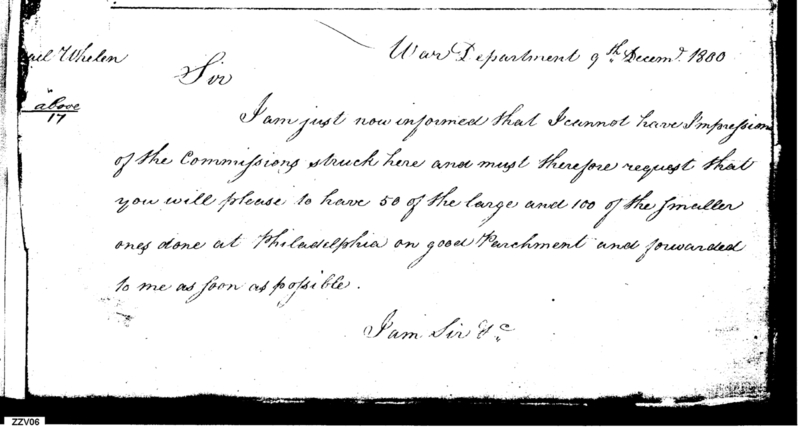 War Department 9th Decemr. 1800
ael Whelen
Sir
above
17
I am just now informed that I cannot have Impressions
of the Commissions struck here and must therefore request that
you will please to have 50 of the large and 100 of the smaller
ones done at Philadelphia on good Parchment and forwarded
to me as soon as possible.
I am Sir &c
ZZV06